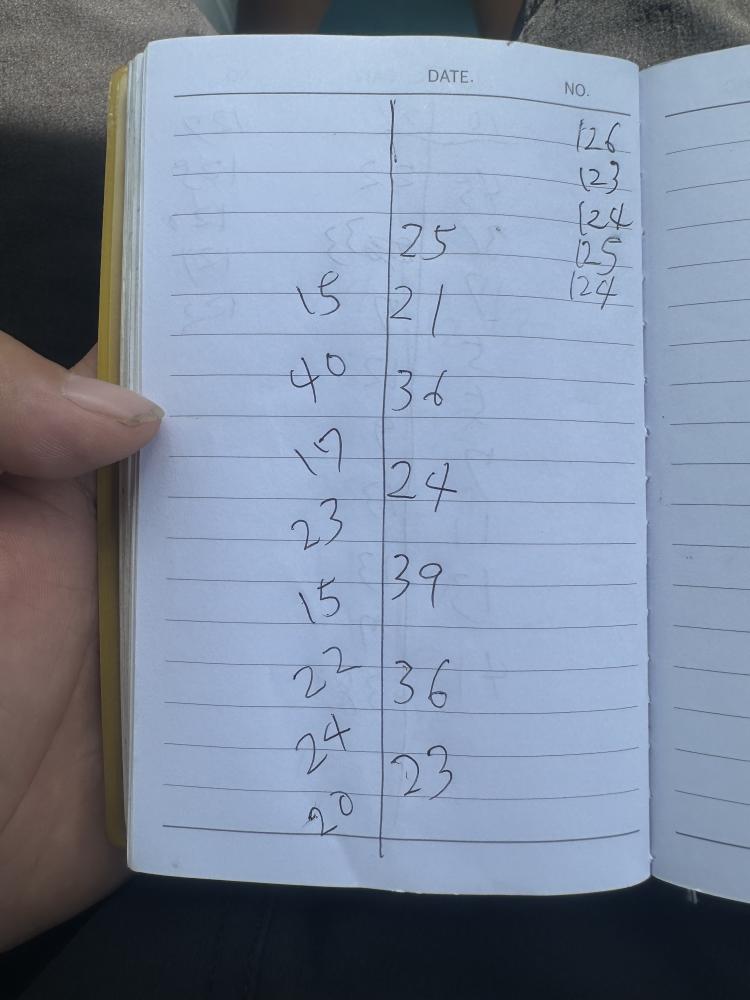 DATE.
NO.
126
123
124
125
124
25
15
21
40
36
17
24
23
39
15
22
36
24
23
20